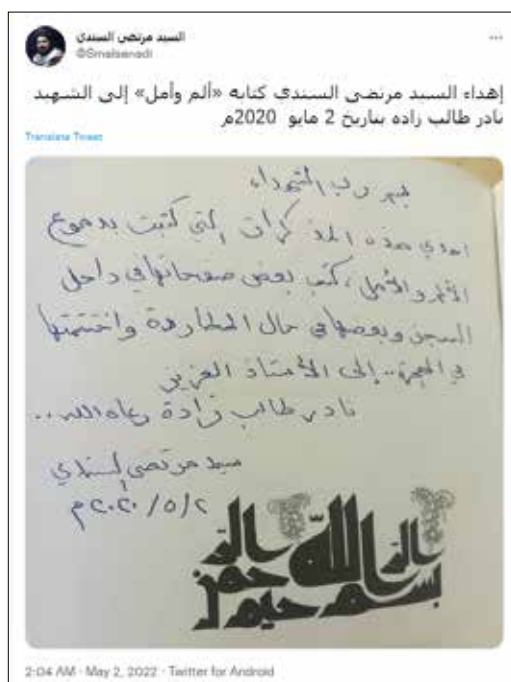 السيد مرتضى السندي
@Smalsanadi
إهداء السيد مرتضى السندي كتابه «ألم وأمل» إلى الشهيد
نادر طالب زاده بتاريخ 2 مايو 2020م
Translate Tweet
رب الشهداء
اهدي هذه المذكرات التي كتبت بدموع
الألم والأمل، كتب بعض صفحاتها في داخل
السجن وبعضها في حال المطاردة واختتمتها
في الهجرة.. إلى الأستاذ العزيز
نادر طالب زادة رعاه الله..
سيد مرتضى السندي
٢٠٢٠/٥/٢م
بسم الله الرحمن الرحيم
2:04 AM · May 2, 2022 · Twitter for Android